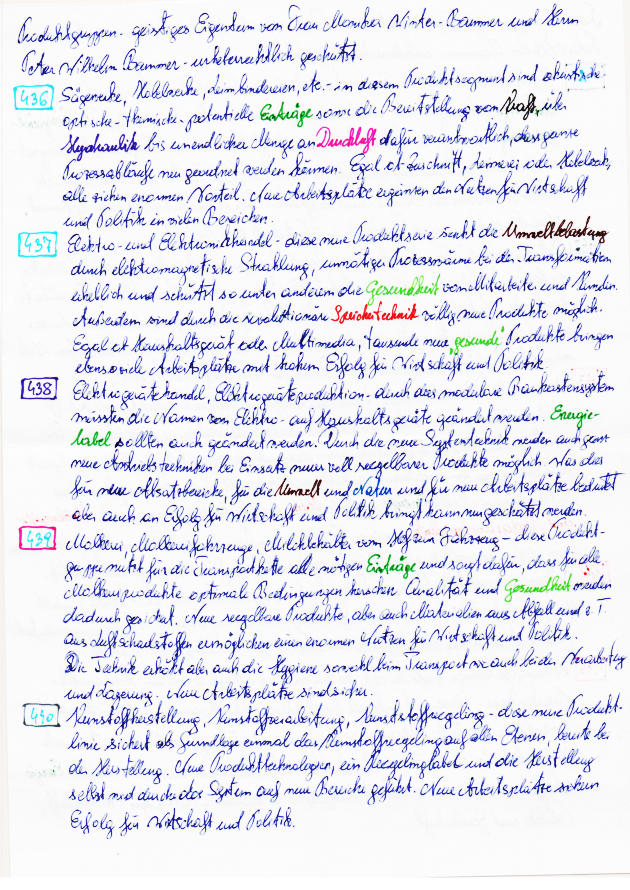 Produktgruppen - geistiges Eigentum von Frau Monika Winter-Bammer und Herrn
Peter Wilhelm Bammer - urheberrechtlich geschützt.
436 Sägewerke, Holzwerke, Leimbindereien, etc. - in diesem Produktsegment sind akustische -
optische - thermische - potentielle Einträge sowie die Bereitstellung von Kraft, über
Hydraulik bis unendlicher Menge an Druckluft dafür verantwortlich, dass ganze
Prozessabläufe neu geordnet werden können. Egal ob Zuschnitt, oder
alle ziehen enormen Vorteil. Neue Arbeitsplätze ergänzen den Nutzen für Wirtschaft
und Politik in vielen Bereichen.
437 Elektro- und Elektronikhandel - diese neue Produktserie senkt die Umweltbelastung
durch elektromagnetische Strahlung, unnötige Prozesswärme bei den Transformatoren
erheblich und schützt so unter anderem die Gesundheit von Mitarbeiter und Kunden.
Außerdem sind durch die revolutionäre Speichertechnik völlig neue Produkte möglich.
Egal ob Haushaltsgerät oder Multimedia, tausende neue "gesunde" Produkte bringen
ebensoviele Arbeitsplätze mit hohem Erfolg für Wirtschaft und Politik.
438 Elektrogerätehandel, Elektrogeräteproduktion - durch das modulare Baukastensystem
müssten die Namen von Elektro- auf Haushaltsgeräte geändert werden. Energie-
label sollten auch geändert werden. Durch die neue Systemtechnik werden auch ganz
neue Antriebstechniken bei Einsatz neuer voll recyclbarer Produkte möglich. Was dies
für neue Absatzbereiche, für die Umwelt und Natur und für neue Arbeitsplätze bedeutet
aber auch an Erfolg für Wirtschaft und Politik bringt kann nur geschätzt werden.
439 Molkerei, Molkereifahrzeuge, Milchbehälter vom Hof zum Fahrzeug - diese Produkt-
gruppe nutzt für die Transportkette alle nötigen Einträge und sorgt dafür, dass für alle
Molkereiprodukte optimale Bedingungen herrschen. Qualität und Gesundheit werden
dadurch gesichert. Neue recyclbare Produkte, aber auch Materialien aus Abfall und z.T.
aus Luftschadstoffen ermöglichen einen enormen Nutzen für Wirtschaft und Politik.
Die Technik erhöht aber auch die Hygiene sowohl beim Transport wie auch bei der Verarbeitung
und Lagerung. Neue Arbeitsplätze sind sicher.
440 Kunststoffherstellung, Kunststoffverarbeitung, Kunststoffrecycling - diese neue Produkt-
linie sichert als Grundlage einmal das Kunststoffrecycling auf allen Ebenen, bereits bei
der Herstellung. Neue Produkttechnologien, ein Recyclinglabel und die Herstellung
selbst wird durch das System auf neue Bereiche geführt. Neue Arbeitsplätze sichern
Erfolg für Wirtschaft und Politik.